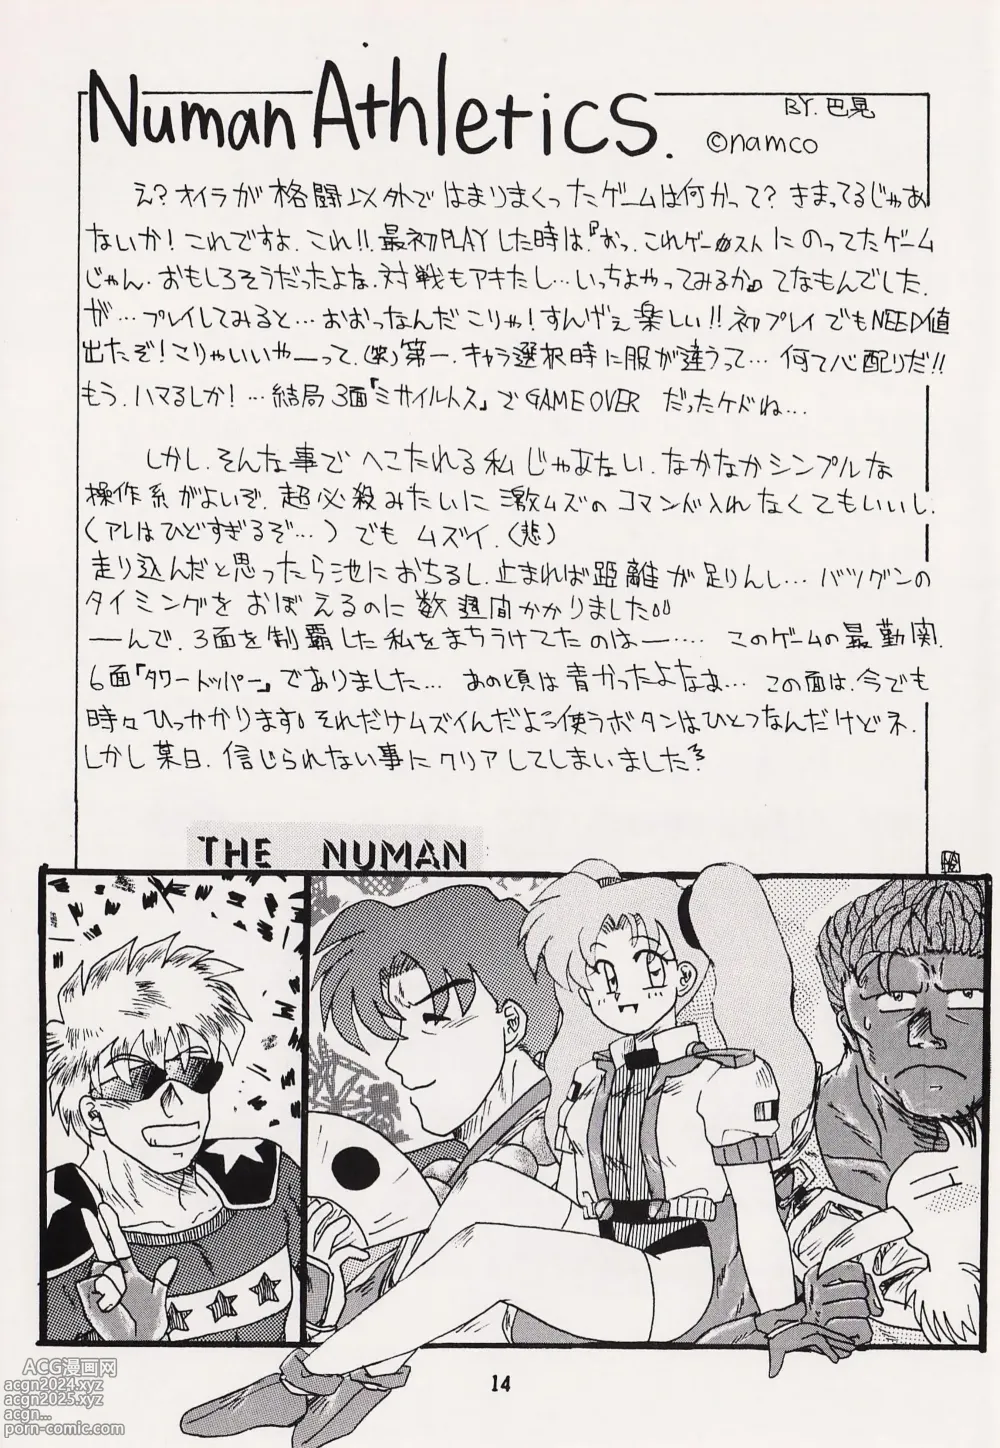 Numan Athletics.
BY.巴晃
©namco
え?オイラが格闘以外ではまりまくったゲームは何かって?きまってるじゃあ
ないか!これですよ.これ!!最初PLAYした時は『おっ.これゲーメストにのってたゲーム
じゃん.おもしろそうだったよな.対戦もアキたし…いっちょやってみるか』てなもんでした.
が…プレイしてみると…おおっなんだこりゃ!すんげぇ楽しい!!初プレイでもNEED値
出たぞ!こりゃいいやーって.(笑)第一.キャラ選択時に服が違うって…何て心配りだ!!
もう.ハマるしか!…結局3面「ミサイルトス」でGAME OVER だったケドね…
しかし.そんな事でへこたれる私じゃあない.なかなかシンプルな
操作系がよいぞ.超必殺みたいに激ムズのコマンド入れなくてもいいし.
(アレはひどすぎるぞ…)でもムズイ.(悲)
走り込んだと思ったら池におちるし.止まれば距離が足りんし…バツグンの
タイミングをおぼえるのに数週間かかりました
ーんで.3面を制覇した私をまちうけてたのはー….このゲームの最難関.
6面「タワートッパー」でありました…あの頃は青かったよなぁ…この面は.今でも
時々ひっかかります。それだけムズイんだよう使うボタンはひとつなんだけどネ.
しかし某日.信じられない事にクリアしてしまいました?
THE NUMAN
14
ACG漫画网
acgn2024.xyz
acgn2025.xyz
acgn...
porn-comic.com